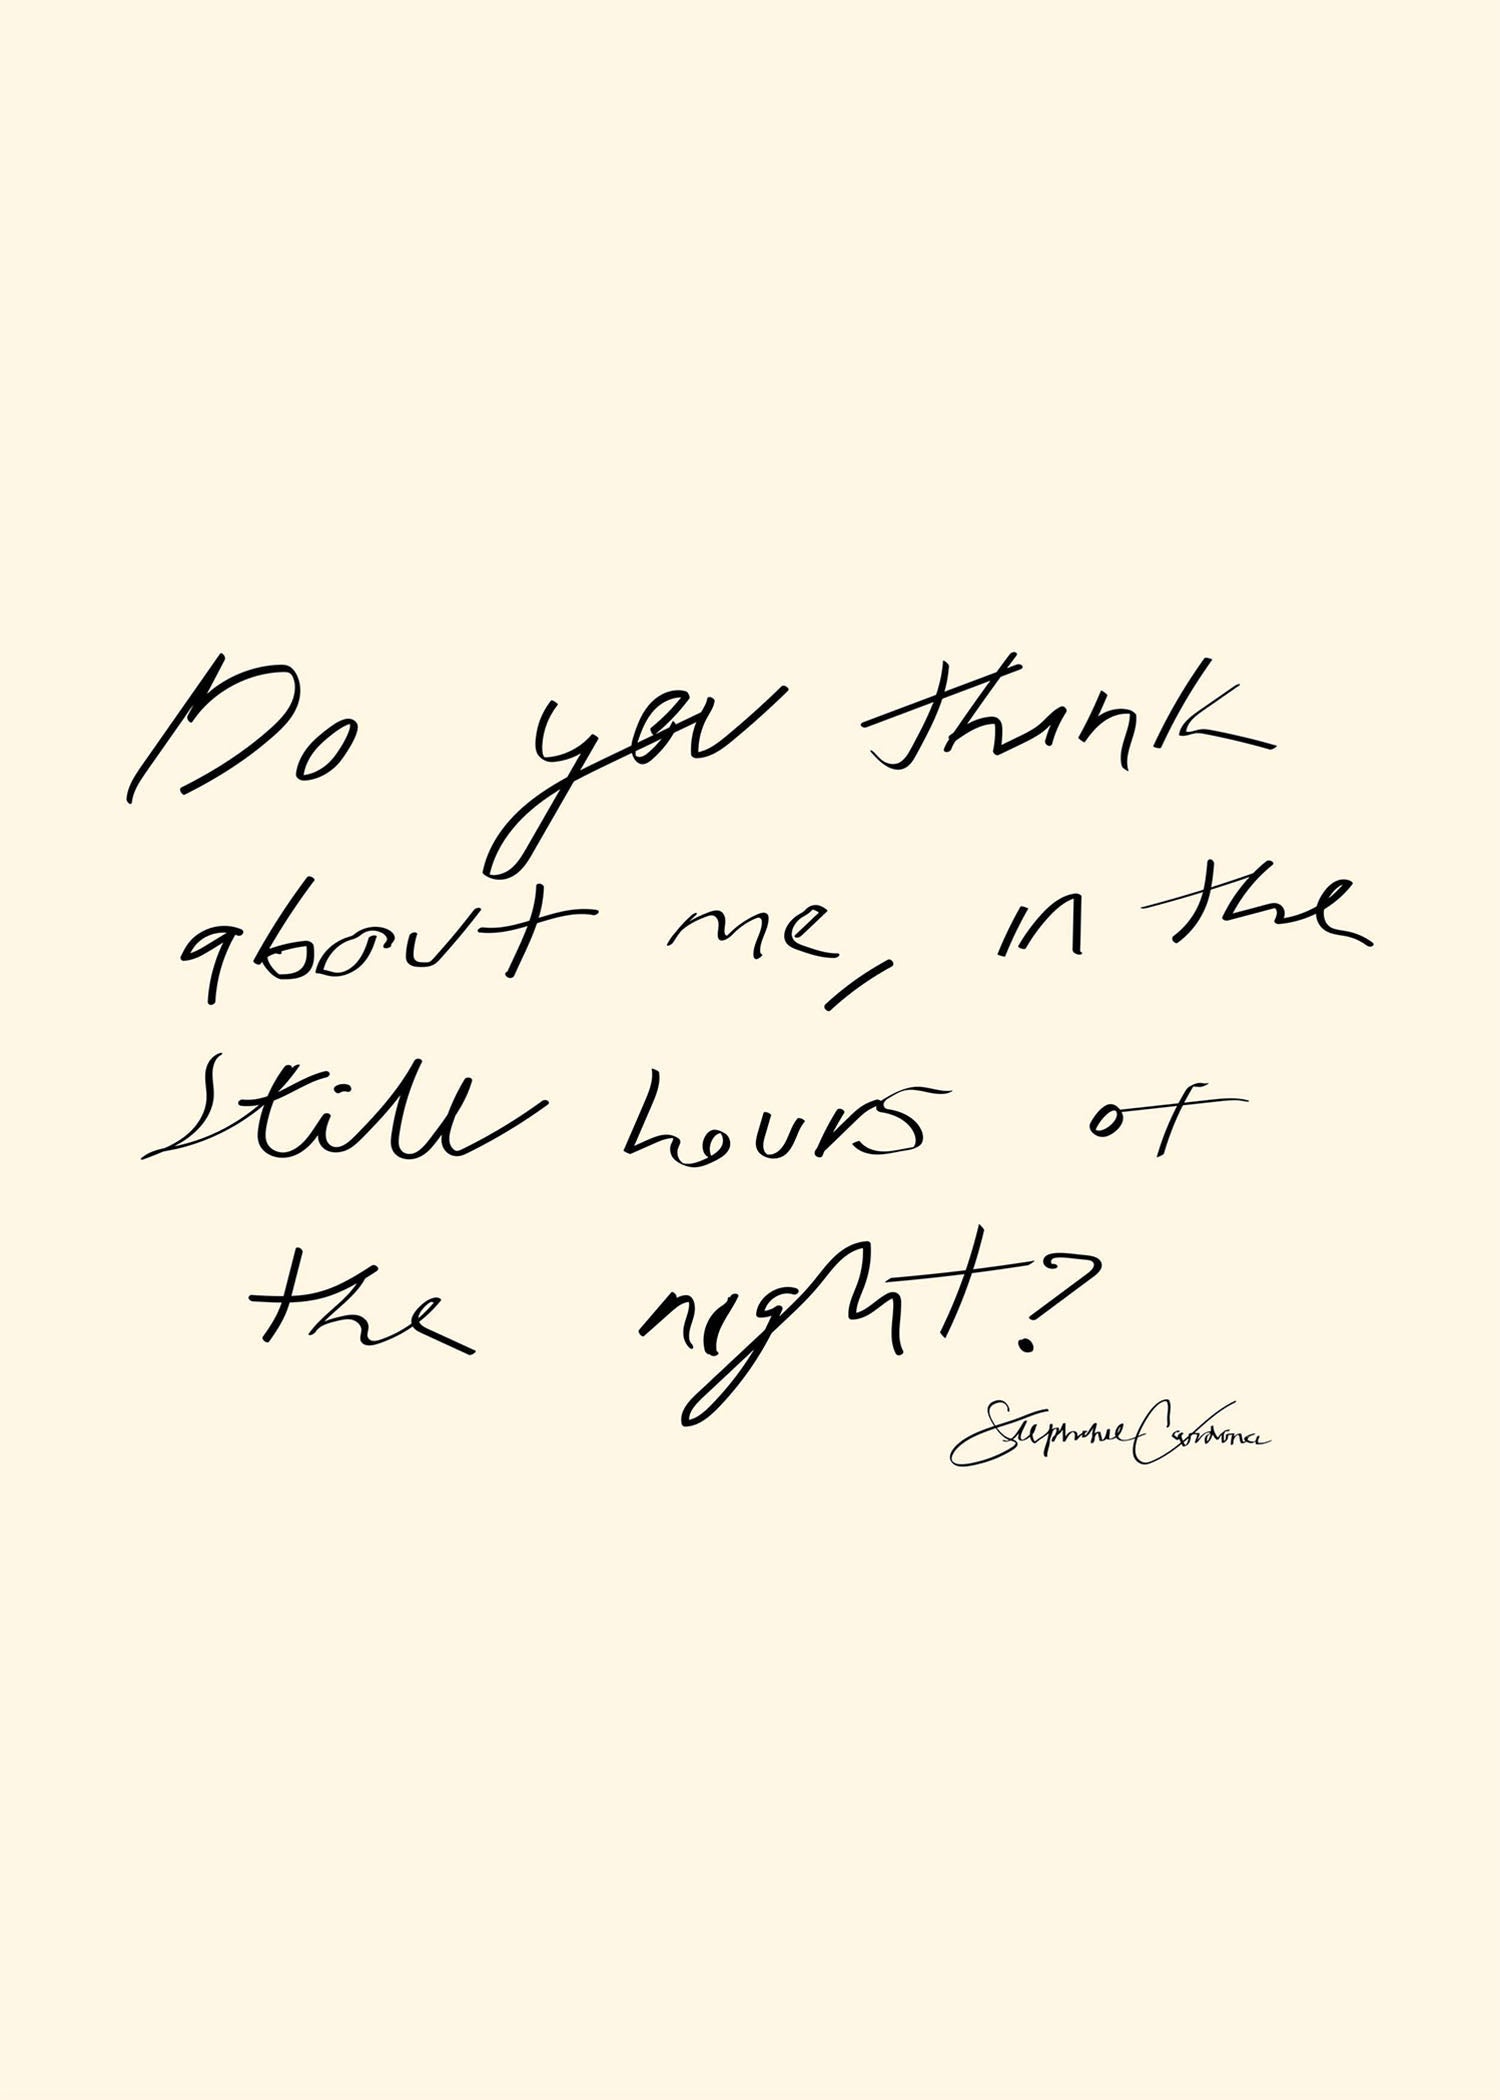 Do you think
about me, in the
still hours of
the night?
Stephanie Cardona